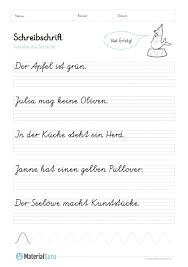 Name: Klasse: Datum:
Schreibschrift
Viel Erfolg!
Der Apfel ist grün.
Julia mag keine Oliven.
In der Küche steht ein Herd.
Janne hat einen gelben Pullover.
Der Seelöwe macht Kunststücke.
MaterialGuru